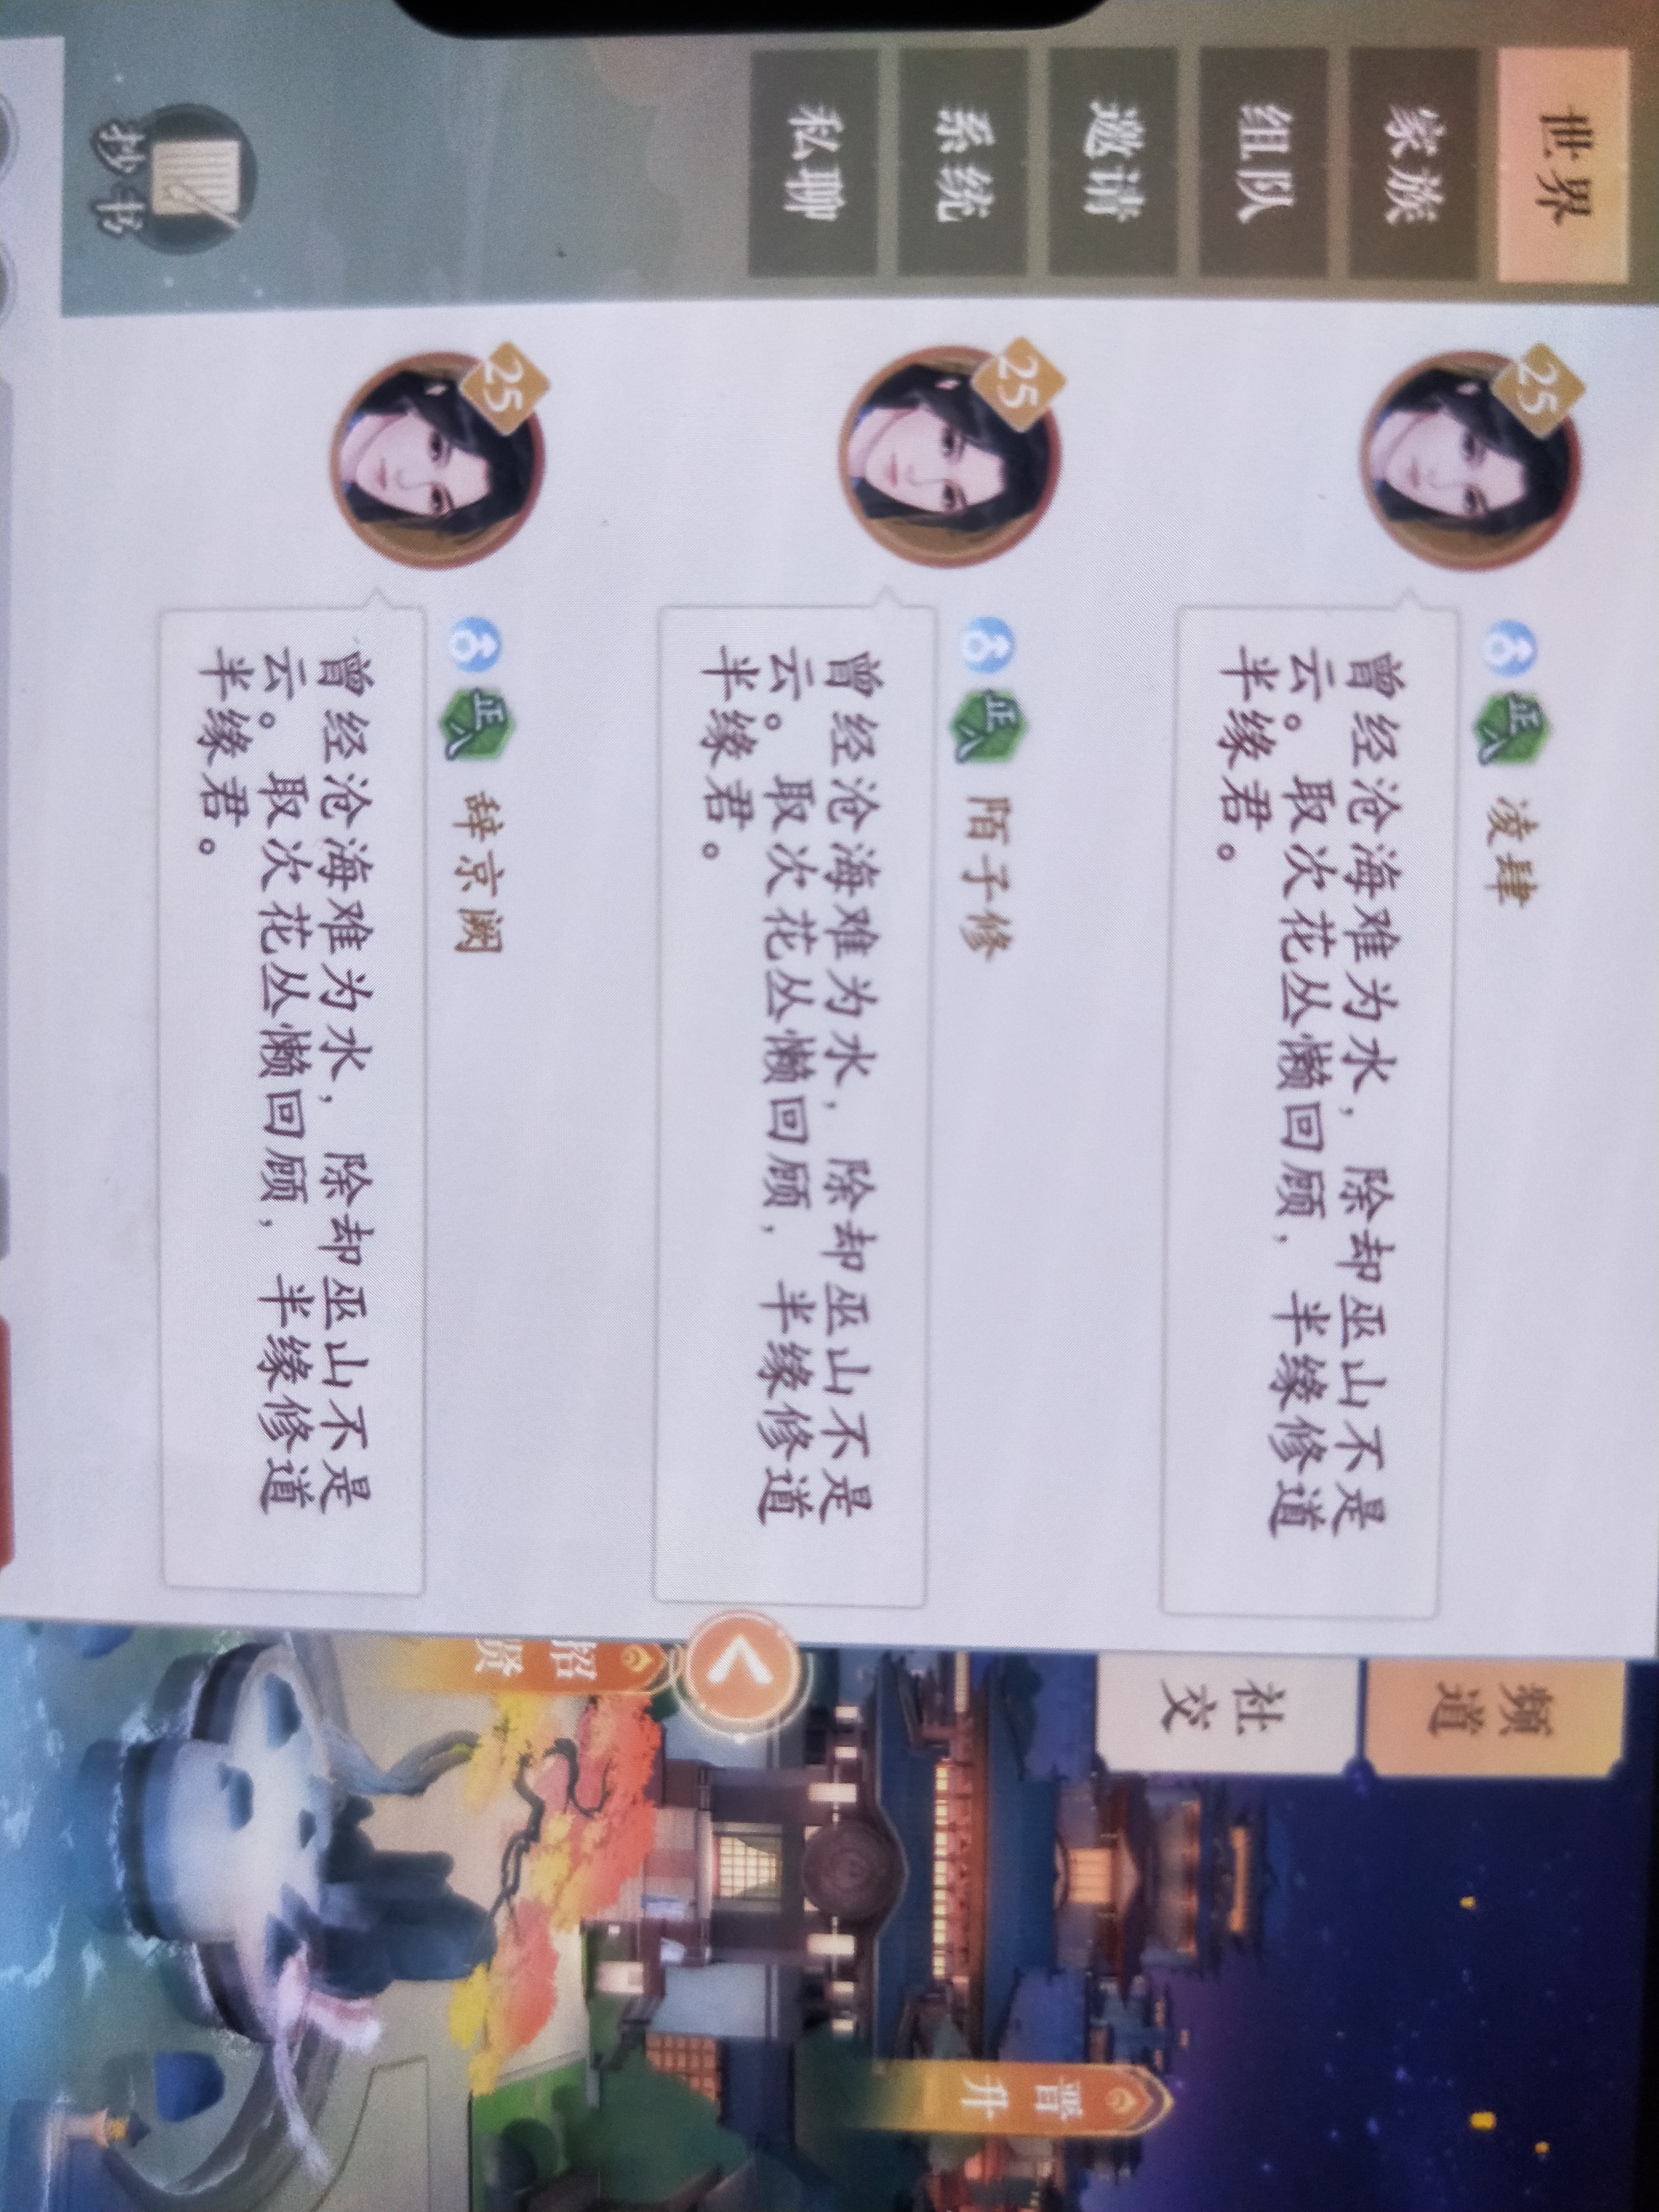 世界
家族
组队
邀请
系统
私聊
抄书
25
凌肆
曾经沧海难为水，除却巫山不是
云。取次花丛懒回顾，半缘修道
半缘君。
25
陌子修
曾经沧海难为水，除却巫山不是
云。取次花丛懒回顾，半缘修道
半缘君。
25
辞京阙
曾经沧海难为水，除却巫山不是
云。取次花丛懒回顾，半缘修道
半缘君。
频道
社交
招贤
晋升